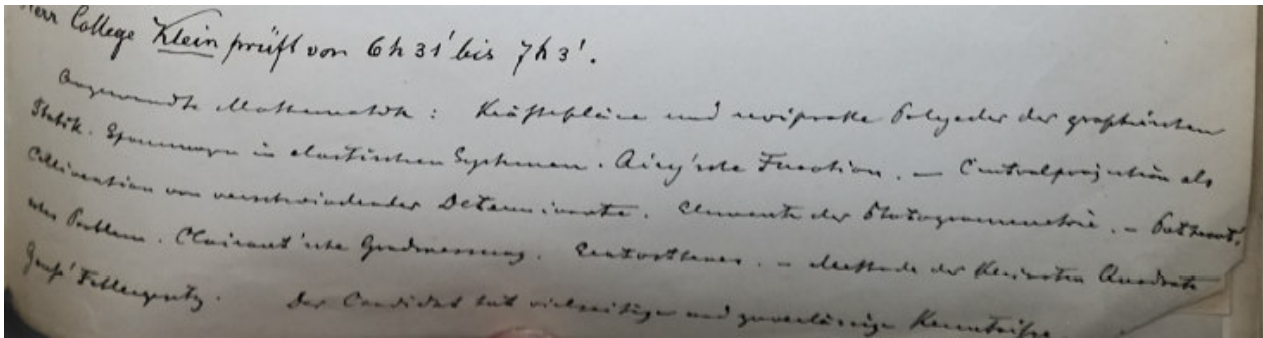 Herr College Klein prüft von 6h 31' bis 7h 3'.
Angewandte Mathematik: Kräftepläne und reciproke Polyeder der graphischen
Statik. Spannungen in elastischen Systemen. Airy'sche Function. — Centralprojection als
Collineation von verschwindender Determinante. Elemente der Photogrammetrie. — Pothenot'
sches Problem. Clairaut'sche Gradmessung. Eratosthenes. — Methode der kleinsten Quadrate
Gauß' Fehlergesetz. Der Candidat hat vielseitige und zuverlässige Kenntnisse